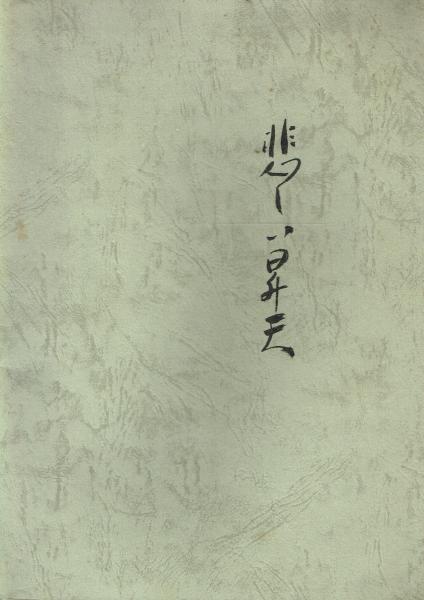 悲しい昇天